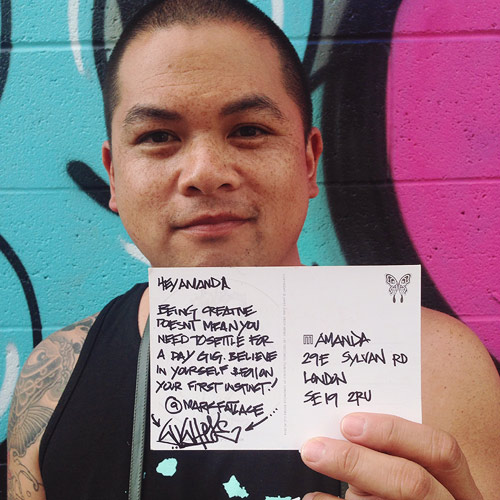 HEY AMANDA
BEING CREATIVE
DOESNT MEAN YOU
NEED TO SETTLE FOR
A DAY GIG. BELIEVE
IN YOURSELF &
YOUR FIRST INSTINCT!
@MARKFATLACE
AMANDA
29E SYLVAN RD
LONDON
SE19 2RU